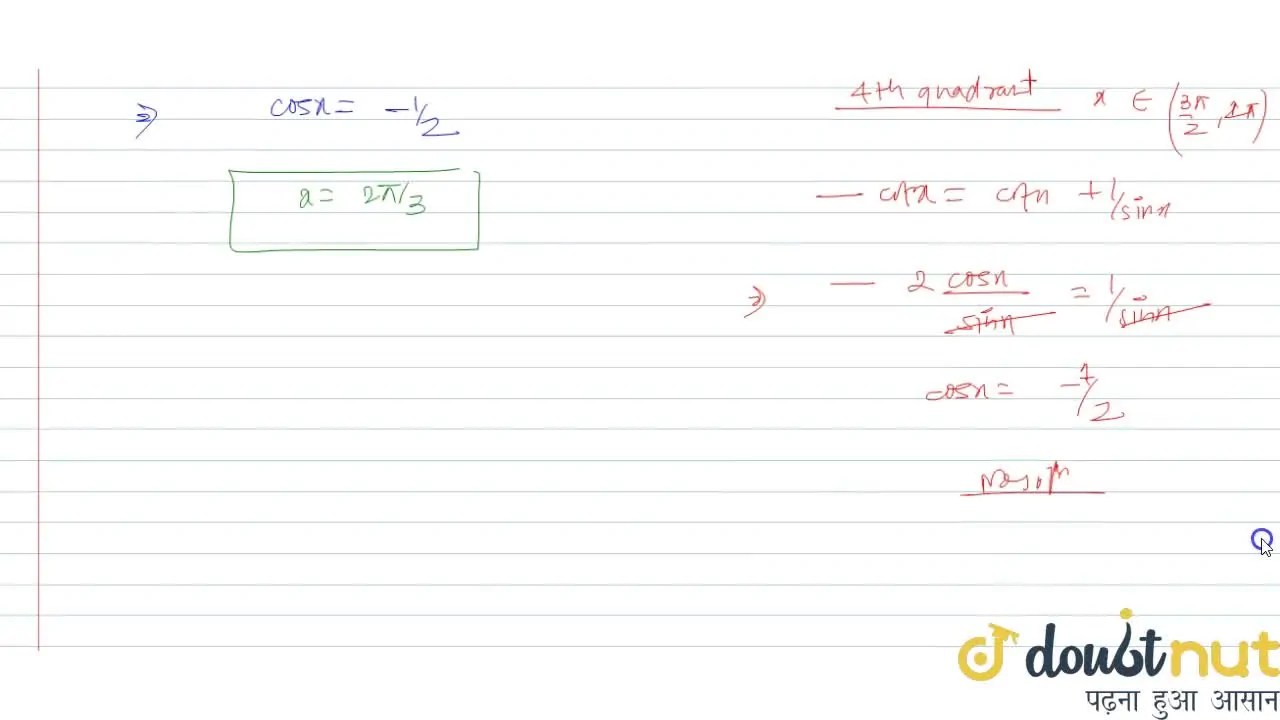 ⇒ cosx = -1/2
x = 2π/3
4th quadrant x ∈ (3π/2, 2π)
- cotx = cotx + 1/sinx
⇒ - 2 cosx/sinx = 1/sinx
cosx = -1/2
No solⁿ
doubtnut
पढ़ना हुआ आसान